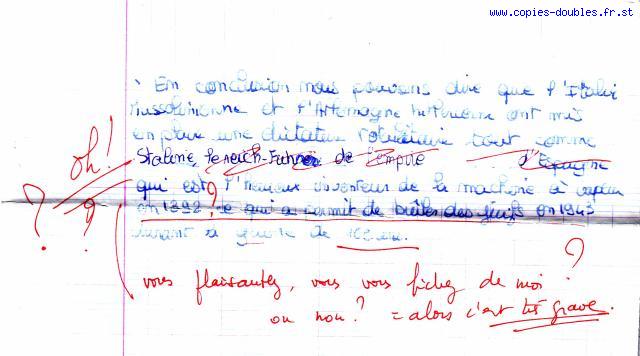 www.copies-doubles.fr.st
En conclusion nous pouvons dire que l'Italie
mussolinienne et l'Allemagne hitlérienne ont mis
en place une dictature totalitaire tout comme
Staline, de l'Empire d'Espagne
qui est inventeur de la machine à vapeur
en 1392? ce qui a permit de brûler des juifs en 1943
durant la guerre de
oh!
? ?
?
vous plaisantez, vous vous fichez de moi
ou non? = alors c'est très grave.